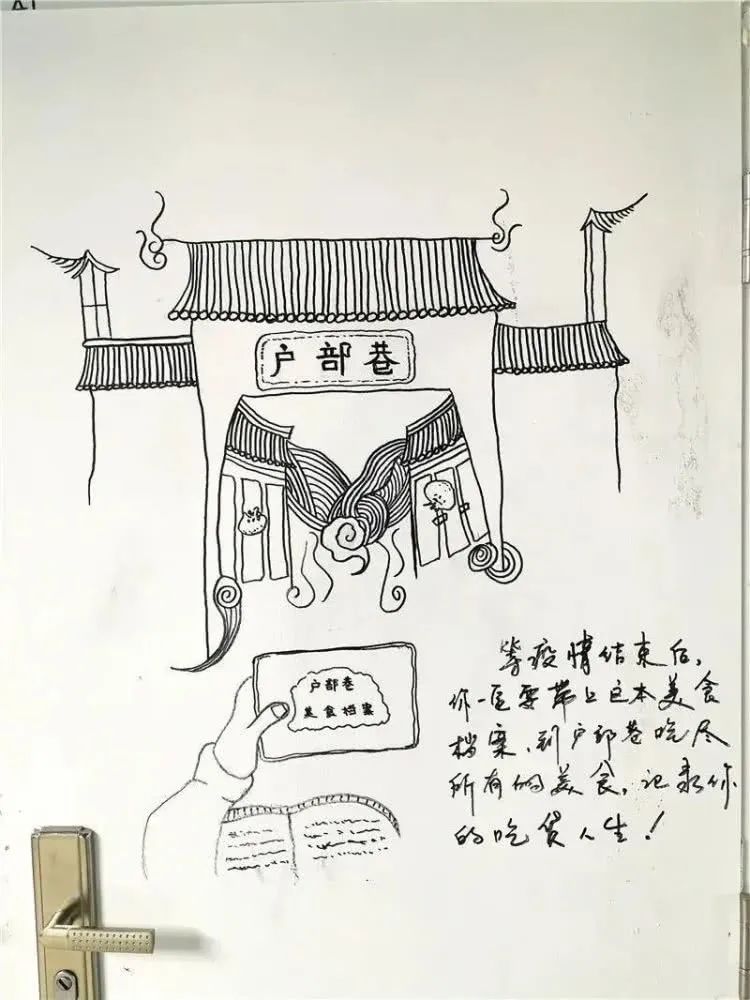 户部巷
户部巷
美食档案
等疫情结束后,
你一定要带上这本美食
档案,到户部巷吃尽
所有的美食,记录你
的吃货人生!